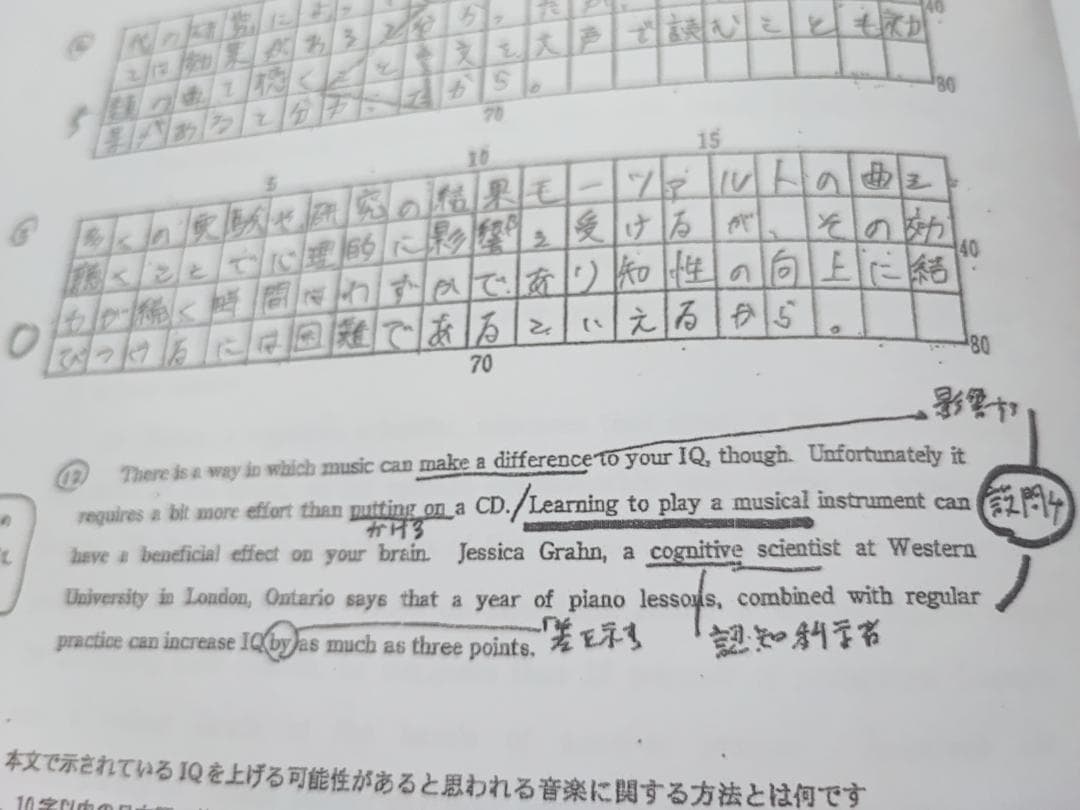 験の曲で聴くことを文を大声で読むことも効
果があると分かったから。
40
80
70
5
10
15
多くの実験や研究の結果モーツァルトの曲を
聴くことで心理的に影響を受けるが、その効
力が続く時間はわずかであり知性の向上に結
びつけるには困難であるといえるから。
40
70
80
影響する
⑫ There is a way in which music can make a difference to your IQ, though. Unfortunately it
requires a bit more effort than putting on a CD. / Learning to play a musical instrument can
かける
設問4
have a beneficial effect on your brain. Jessica Grahn, a cognitive scientist at Western
University in London, Ontario says that a year of piano lessons, combined with regular
practice can increase IQ by as much as three points.
差を示す
認知科学者
本文で示されているIQを上げる可能性があると思われる音楽に関する方法とは何です